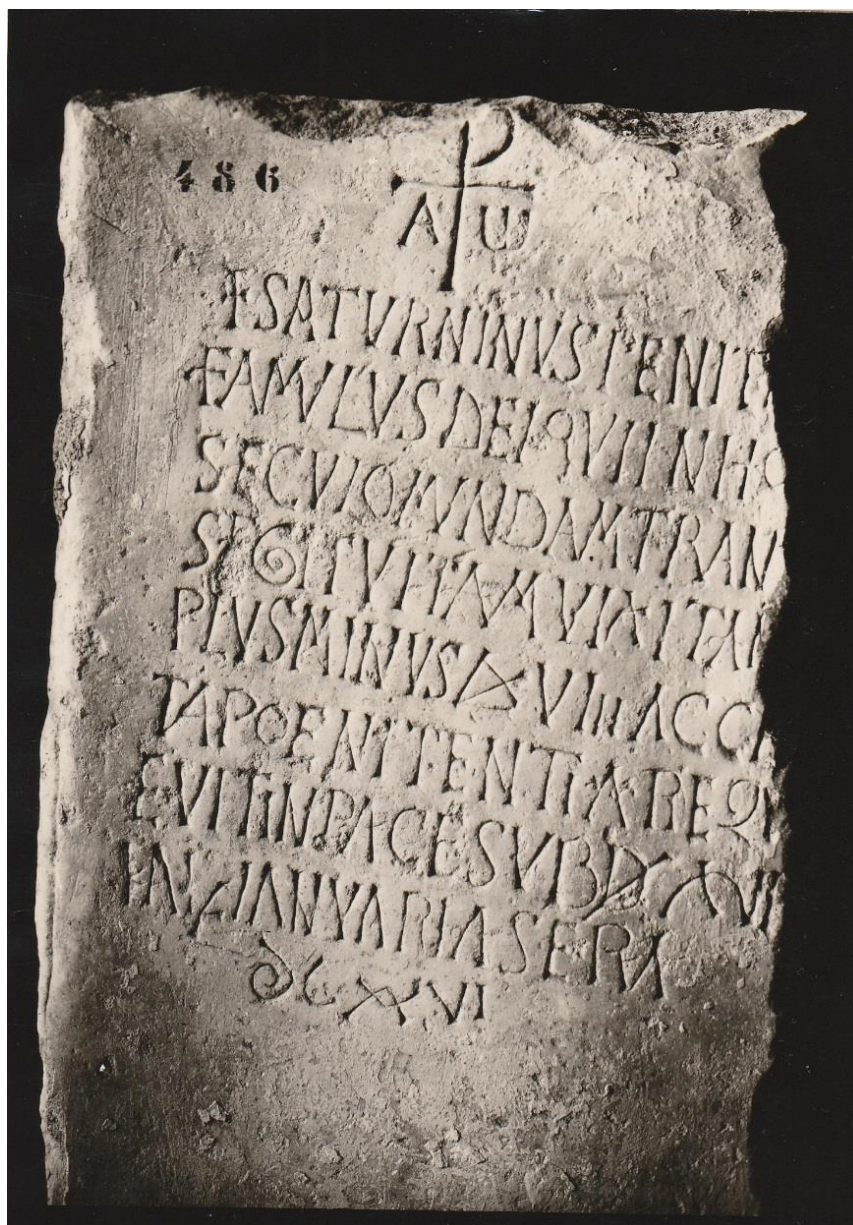 486
A Ω
SATURNINUS PENITE
FAMULUS DEI QUI IN HO
SECULO MUNDAM TRAN
SEGIT VITAM VIXIT AN
PLUS MINUS VIII ACCE
TA POENITENTIA REQI
EVIT IN PACE SUB D
KAL IANUARIAS ERA
DCXXVI